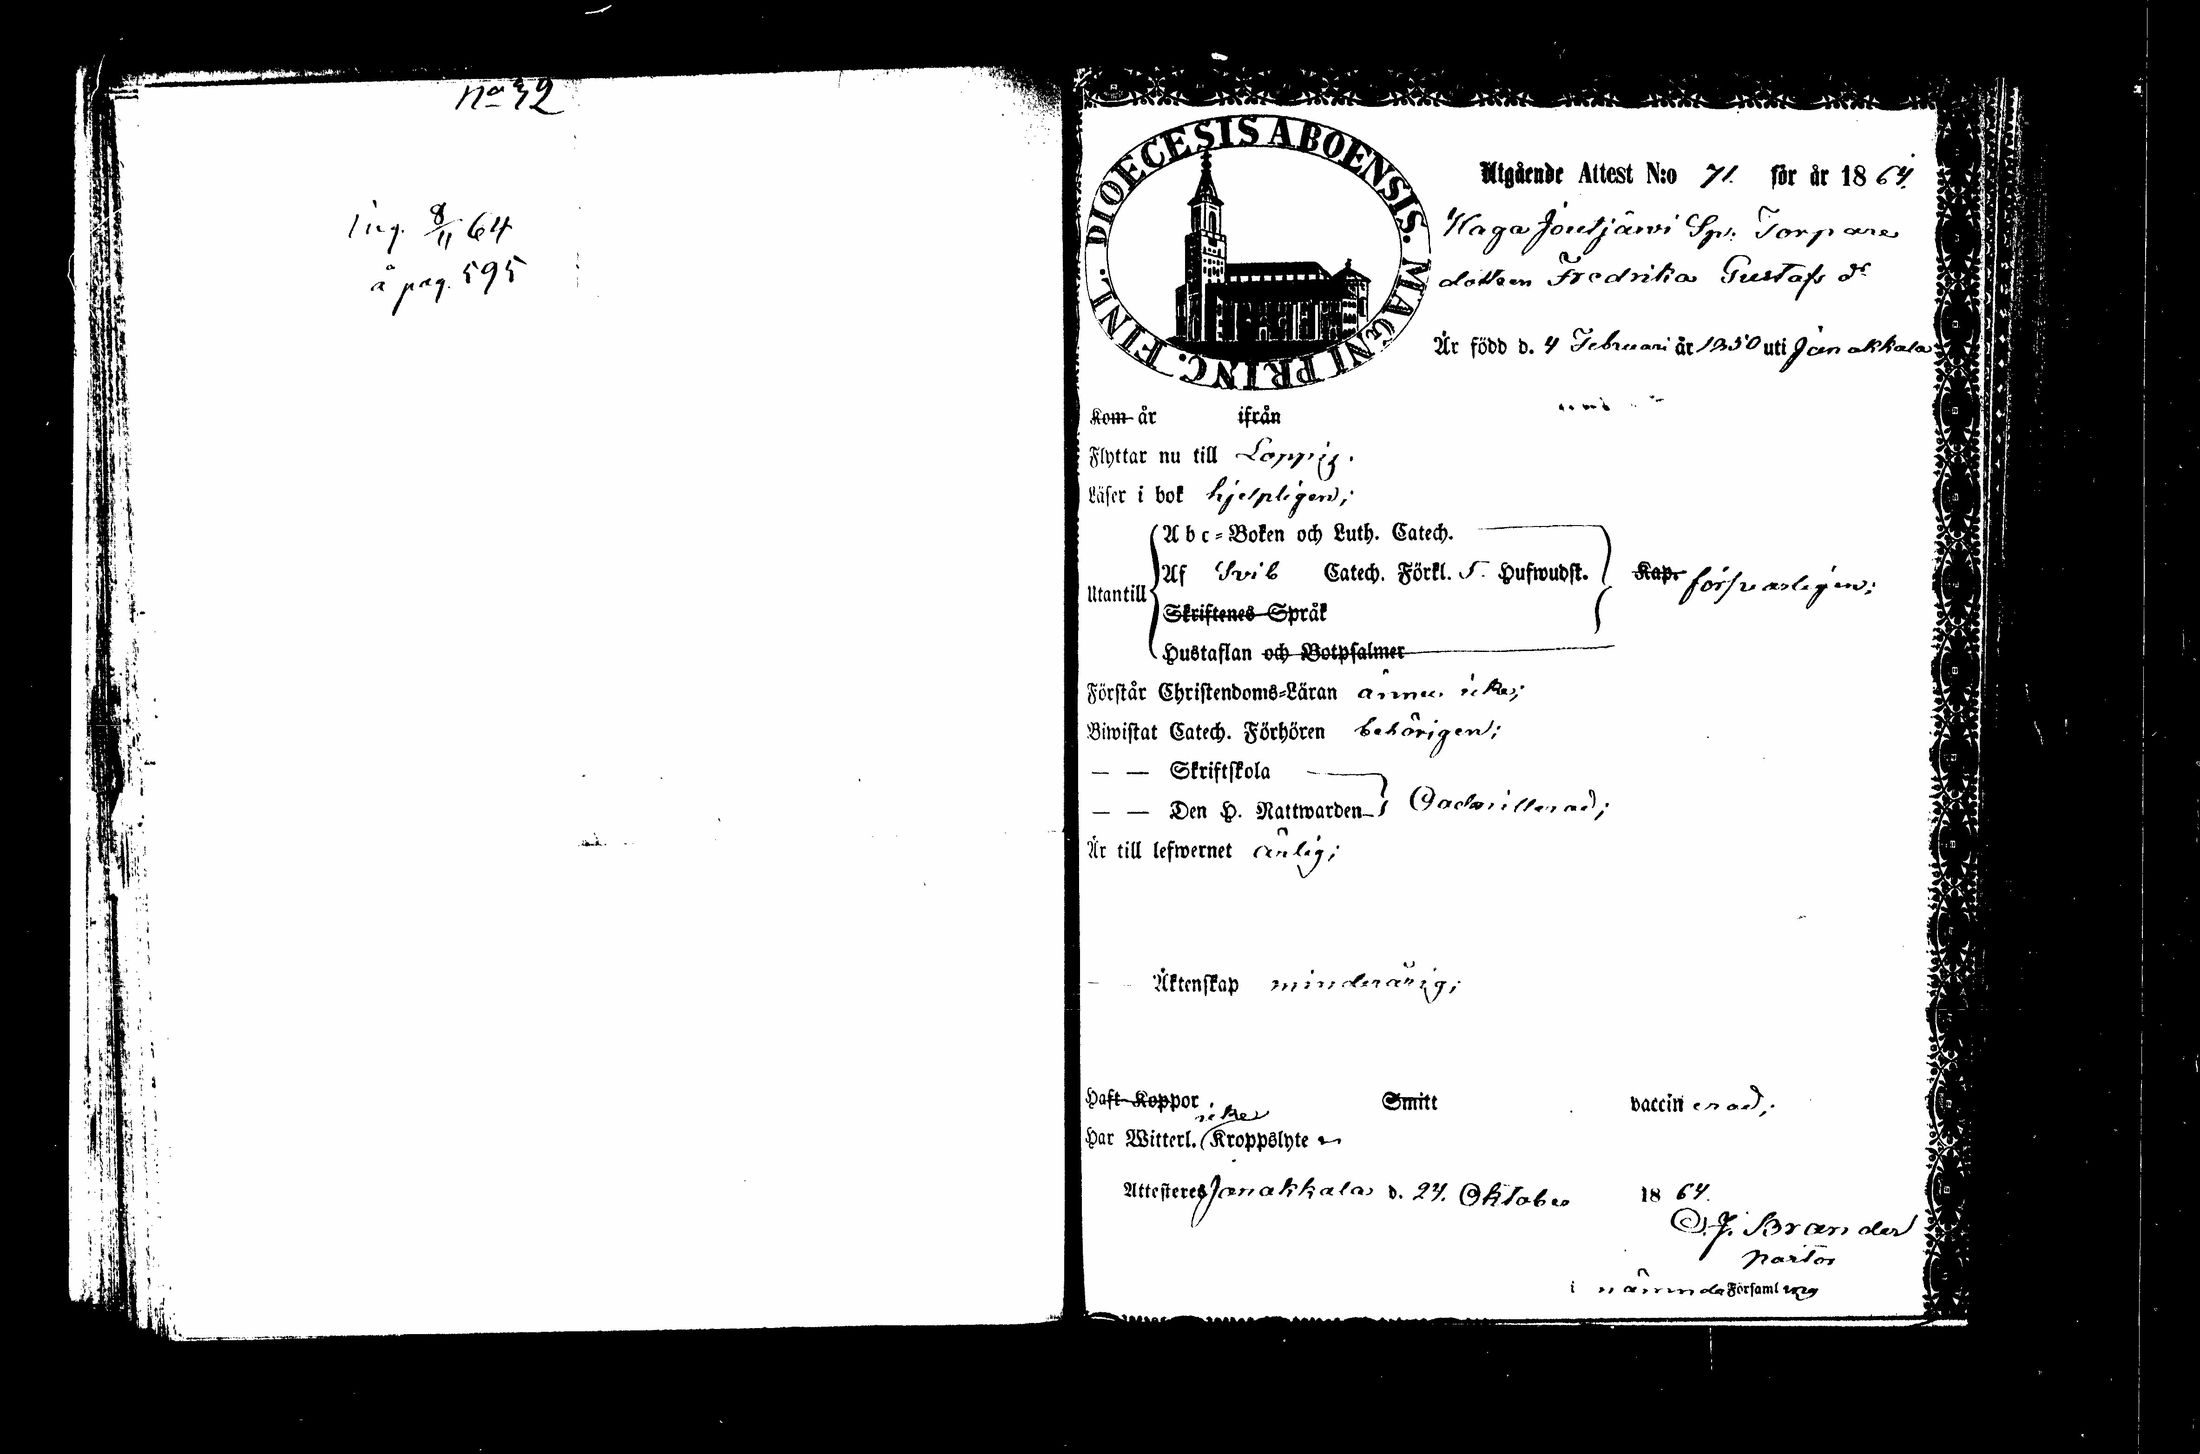 No 32
Ing. 8/11 64
å pag. 595
DIOECESIS ABOENSIS. MAGNI PRINC. FINL.
Utgående Attest N:o 71. för år 1864.
Haga Joutjärwi Sp: Torpare
dottren Fredrika Gustafs dr
Är född d. 4 Februari år 1850 uti Janakkala
Kom år ifrån
Flyttar nu till Loppis.
Läser i bok hjelpligen;
Utantill
Abc-Boken och Luth. Catech.
Af Sveb Catech. Förkl. 5. Hufwudst.
Kap. försvarligen;
Skriftenes Språk
Hustaflan och Botpsalmer
Förstår Christendoms-Läran ännu icke;
Biwistat Catech. Förhören behörigen;
— — Skriftskola
— — Den H. Nattwarden Oadmitterad;
Är till lefwernet ärlig;
— — Äktenskap minderårig;
Haft Koppor Smitt vaccinerad;
icke
Har Witterl. Kroppslyte
Attesteres Janakkala d. 24. Oktober 1864.
O. J. Brander
pastor
i nämnda Församling